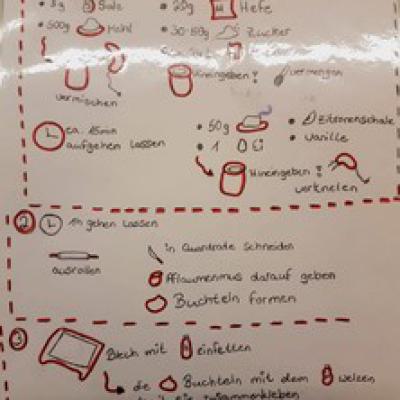 • 5g Salz • 20g Hefe
• 500g Mehl • 30-50g Zucker
Hineingeben! vermengen
vermischen
ca. 15min aufgehen lassen
• 50g • Zitronenschale
• 1 Ei • Vanille
Hineingeben! verkneten
② 1h gehen lassen
in Quadrate schneiden
ausrollen
Pflaumenmus darauf geben
Buchteln formen
③ Blech mit einfetten
die Buchteln mit dem
zusammenkleben